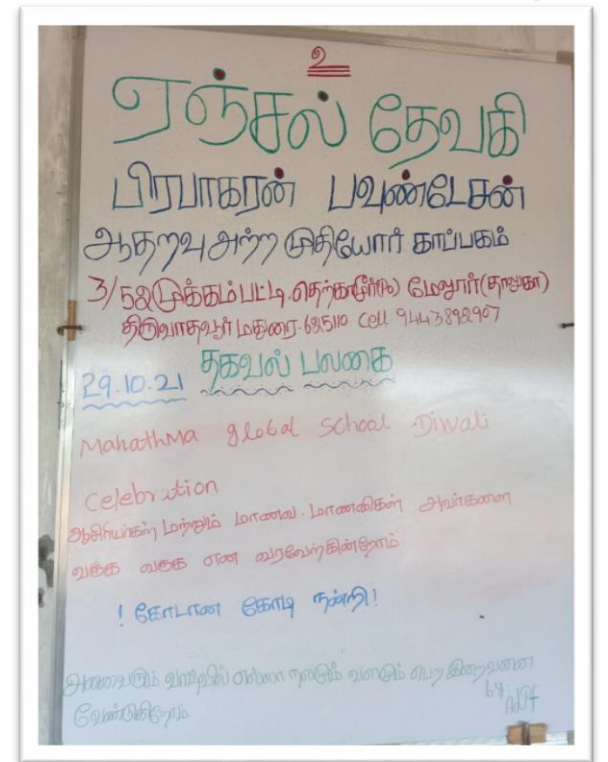 உ
ஏஞ்சல் தேவகி
பிரபாகரன் பவுண்டேசன்
ஆதரவு அற்ற முதியோர் காப்பகம்
3/52 முக்கம்பட்டி, தெற்காமூர் மேலூர் (தாலுகா)
திருவாதவூர் மதுரை-625110 Cell 9443892907
29.10.21 தகவல் பலகை
Mahathma global School Diwali
Celebration
ஆசிரியர்கள் மற்றும் மாணவ. மாணவிகள் அவர்களை
வருக வருக என வரவேற்கின்றோம்
! கோடான கோடி நன்றி!
அனைவரும் வாழ்வில் எல்லா நலமும் வளமும் பெற இறைவனை
வேண்டுகிறோம்
by. Adpf